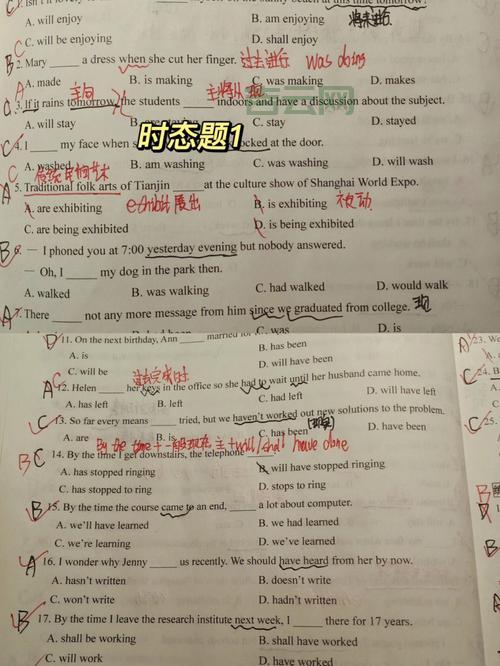 A. will enjoy B. am enjoying 将来进行
C C. will be enjoying D. shall enjoy
B 2. Mary ____ a dress when she cut her finger. 过去进行 was doing
A. made B. is making C. was making D. makes
3. If it rains tomorrow, the students ____ indoors and have a discussion about the subject.
A. will stay C. stayed D. stayed
时态题1
C 4. I ____ my face when s locked at the door.
A. washed B. am washing C. was washing D. wash
A 5. Traditional folk arts of Tianjin ____ at the culture show of Shanghai World Expo.
A. are exhibiting exhibit 展出 B. is exhibiting 被动
C. are being exhibited D. is being exhibited
B 6. — I phoned you at 7:00 yesterday evening but nobody answered.
— Oh, I ____ my dog in the park then.
A. walked B. was walking C. had walked D. would walk
A 7. There ____ not any more message from him since we graduated from college.
C. was D. is
D 11. On the next birthday, Ann ____ married for
A. is B. has been
C. will be D. will have been
A C 12. Helen ____ her keys in the office so she had to wait until her husband came home.
A. has left B. left C. had left D. will have left
C 13. So far every means ____ tried, but we haven't worked out new solutions to the problem.
A. are B. is C. has been D. have been
By the time + 一般现在 主+will/shall have done
B C 14. By the time I get downstairs, the telephone ____
A. has stopped ringing B. will have stopped ringing
C. has stopped to ring D. stops to ring
B 15. By the time the course came to an end, ____ a lot about computer.
A. we'll have learned B. we had learned
C. we're learning D. we've learned
A 16. I wonder why Jenny ____ us recently. We should have heard from her by now.
A. hasn't written B. doesn't write
C. won't write D. hadn't written
B 17. By the time I leave the research institute next week, I ____ there for 17 years.
A. shall be working B. shall have worked
C. will work D. have worked